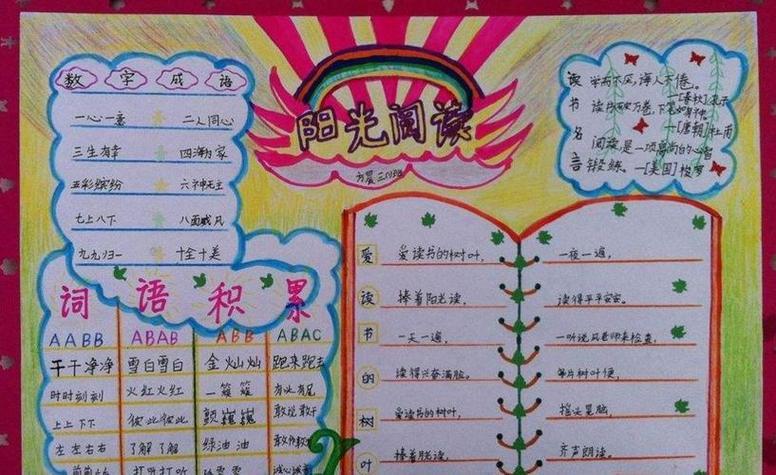 阳光阅读
数字成语
一心一意 二人同心
三生有幸 四海为家
五彩缤纷 六神无主
七上八下 八面威风
九九归一 十全十美
读书名言
学而不厌,诲人不倦。
—[春秋]孔子
读书破万卷,下笔如有神。
—[唐朝]杜甫
阅读是一项高尚的心智
锻炼。—[美国]梭罗
词语积累
AABB ABAB ABB ABAC
干干净净 雪白雪白 金灿灿 跑来跑去
时时刻刻 火红火红 一簇簇 有头有尾
上上下下 彼此彼此 颤巍巍 敢说敢干
左左右右 了解了解 绿油油
打听打听
爱读书的树叶
爱读书的树叶,
捧着阳光读,
一天一遍,
读得兴奋满脸。
爱读书的树叶,
捧着月光读,
一夜一遍,
读得平平安安。
一听说风老师来检查,
每片树叶便,
摇头晃脑,
齐声朗读。